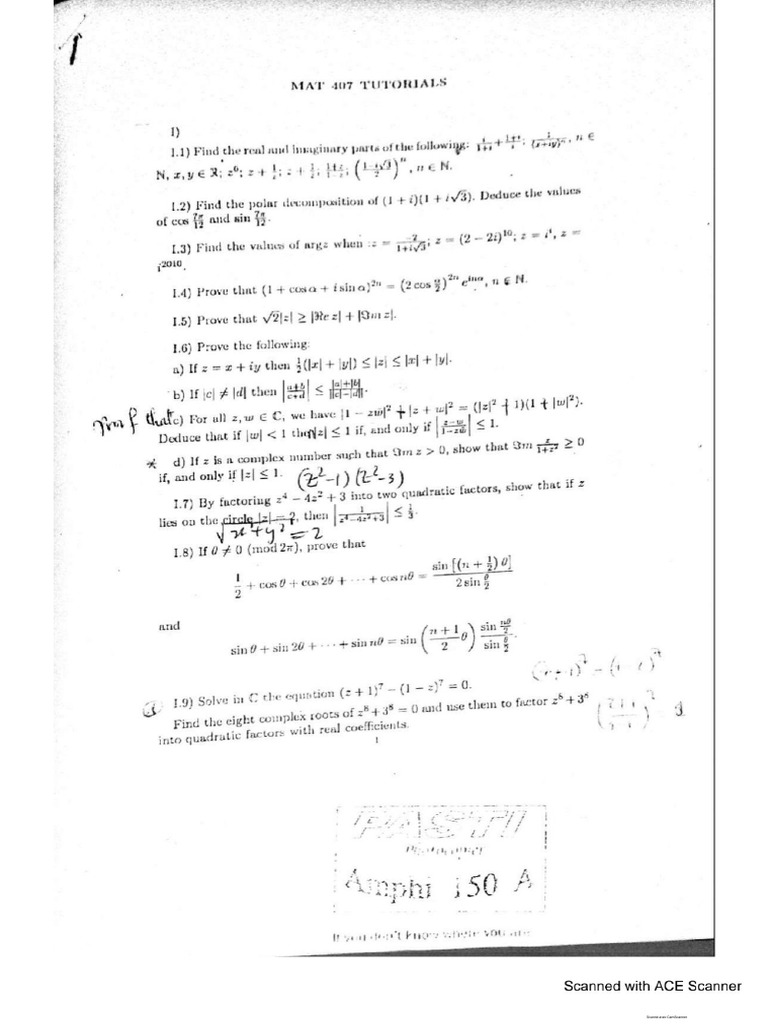 1
MAT 407 TUTORIALS
I)
I.1) Find the real and imaginary parts of the following: 1/(1+i) + (1+i)/i; 1/(x+iy)^n, n ∈
ℕ, x, y ∈ ℜ; z^6; z + 1/z; z + 1/z; (1+z)/(1−z); ((1−i√3)/2)^n, n ∈ ℕ.
I.2) Find the polar decomposition of (1 + i)(1 + i√3). Deduce the values
of cos 7π/12 and sin 7π/12.
I.3) Find the values of argz when :z = −2/(1+i√3); z = (2 − 2i)^10; z = i^i, z =
i^2010.
I.4) Prove that (1 + cos α + i sin α)^2n = (2 cos α/2)^2n e^inα, n ∈ ℕ.
I.5) Prove that √2|z| ≥ |ℜe z| + |ℑm z|.
I.6) Prove the following:
a) If z = x + iy then ½(|x| + |y|) ≤ |z| ≤ |x| + |y|.
b) If |c| ≠ |d| then |(a+b)/(c+d)| ≤ (|a|+|b|)/||c|−|d||.
that c) For all z, w ∈ ℂ, we have |1 − zw̄|² + |z + w|² = (|z|² + 1)(1 + |w|²).
Deduce that if |w| < 1 then |z| ≤ 1 if, and only if |(z−w)/(1−zw̄)| ≤ 1.
* d) If z is a complex number such that ℑm z > 0, show that ℑm z/(1+z²) ≥ 0
if, and only if |z| ≤ 1. (z²−1)(z²−3)
I.7) By factoring z⁴ − 4z² + 3 into two quadratic factors, show that if z
lies on the circle |z| = 2, then |1/(z⁴−4z²+3)| ≤ 1/3.
√x²+y² = 2
I.8) If θ ≠ 0 (mod 2π), prove that
1/2 + cos θ + cos 2θ + ··· + cos nθ = sin [(n + ½) θ] / 2 sin θ/2
and
sin θ + sin 2θ + ··· + sin nθ = sin ((n + 1)/2 θ) sin nθ/2 / sin θ/2.
I.9) Solve in ℂ the equation (z + 1)⁷ − (1 − z)⁷ = 0.
Find the eight complex roots of z⁸ + 3⁸ = 0 and use them to factor z⁸ + 3⁸
into quadratic factors with real coefficients.
1
FASTI
Photocopy
Amphi 150 A
If you don't know where you are
Scanned with ACE Scanner